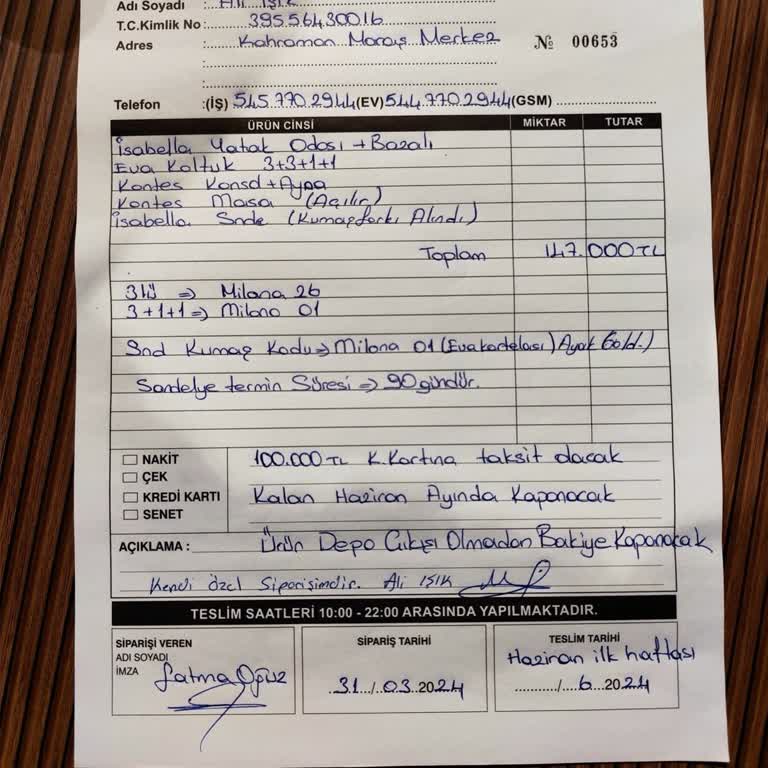 Adı Soyadı : Ali Işık
T.C.Kimlik No : 39556430016
Adres : Kahraman Maraş Merkez
№ 00653
Telefon :(İŞ) 545.770.2944(EV)544.770.2944(GSM)
ÜRÜN CİNSİ MİKTAR TUTAR
İsabella Yatak Odası + Bazalı
Eva Koltuk 3+3+1+1
Kontes Konsol + Ayna
Kontes Masa (Açılır)
İsabella Snde (Kumaş farkı Alındı)
Toplam 147.000 TL
3lü => Milana 26
3+1+1 => Milano 01
Snd Kumaş Kodu => Milona 01 (Eva kartelası) Ayak Gold.)
Sandelye termin Süresi => 90 gündür.
NAKİT
ÇEK
KREDİ KARTI
SENET
100.000 TL K.Kartına taksit olacak
Kalan Haziran Ayında Kapanacak
AÇIKLAMA : Ürün Depo Çıkışı Olmadan Bakiye Kapanacak
Kendi özel Siparişimdir. Ali IŞIK
TESLİM SAATLERİ 10:00 - 22:00 ARASINDA YAPILMAKTADIR.
SİPARİŞİ VEREN
ADI SOYADI
İMZA
Fatma Oğuz
SİPARİŞ TARİHİ
31./.03.2024
TESLİM TARİHİ
Haziran ilk haftası
........../....6...2024